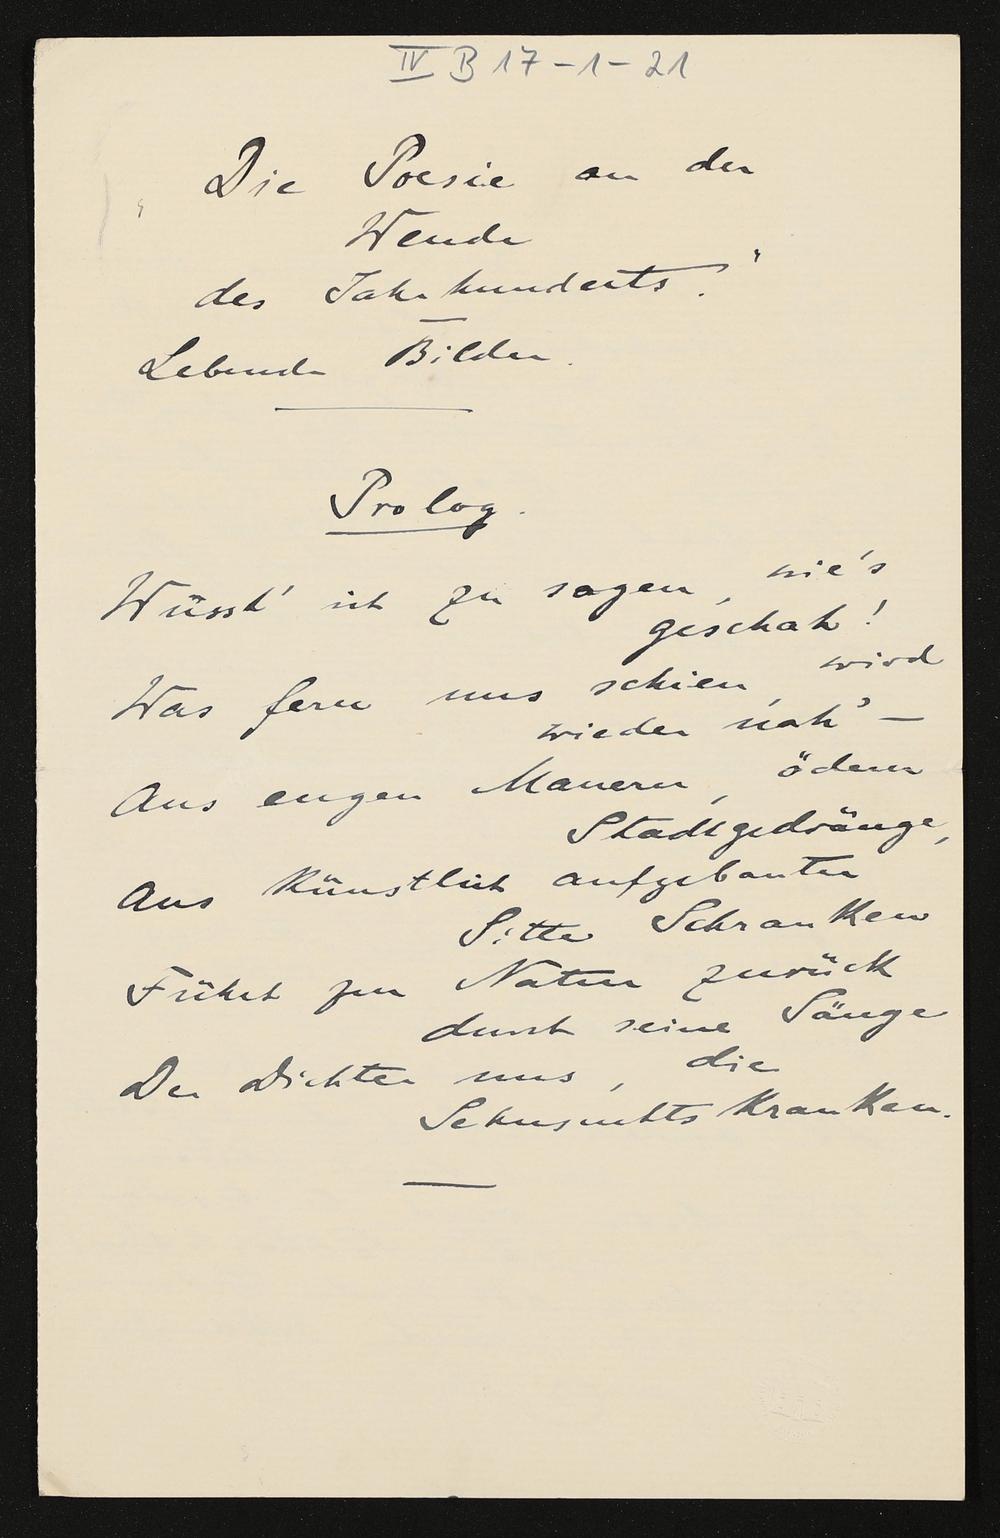 IV B 17-1-21
„Die Poesie an der
Wende
des Jahrhunderts."
Lebende Bilder.
Prolog.
Wüsst' ich zu sagen, wie's
geschah!
Was fern uns schien, wird
wieder nah' –
Aus engen Mauern, ödem
Stadtgedränge,
Aus künstlich aufgebauter
Sitte Schranken
Führt zur Natur zurück
durch seine Sänge
Der Dichter uns, die
Sehnsuchtskranken.